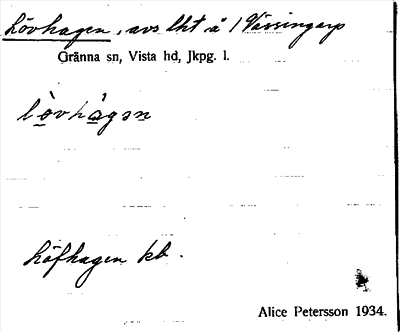 Lövhagen, avs lht å 1 Vässingarp
Gränna sn, Vista hd, Jkpg. l.
lòvhàgɜn
Löfhagen kb.
Alice Petersson 1934.